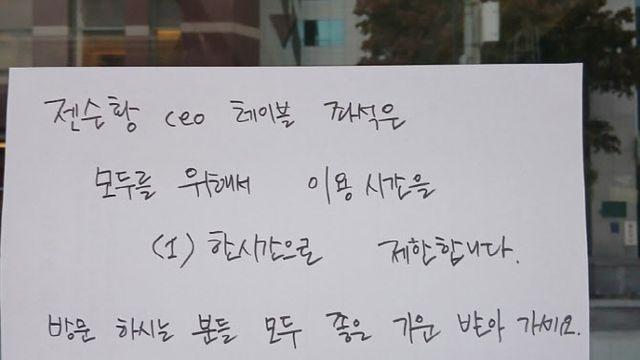 젠슨황 ceo 테이블 좌석은
모두를 위해서 이용 시간을
(1) 한시간으로 제한합니다.
방문 하시는 분들 모두 좋은 기운 받아 가세요.